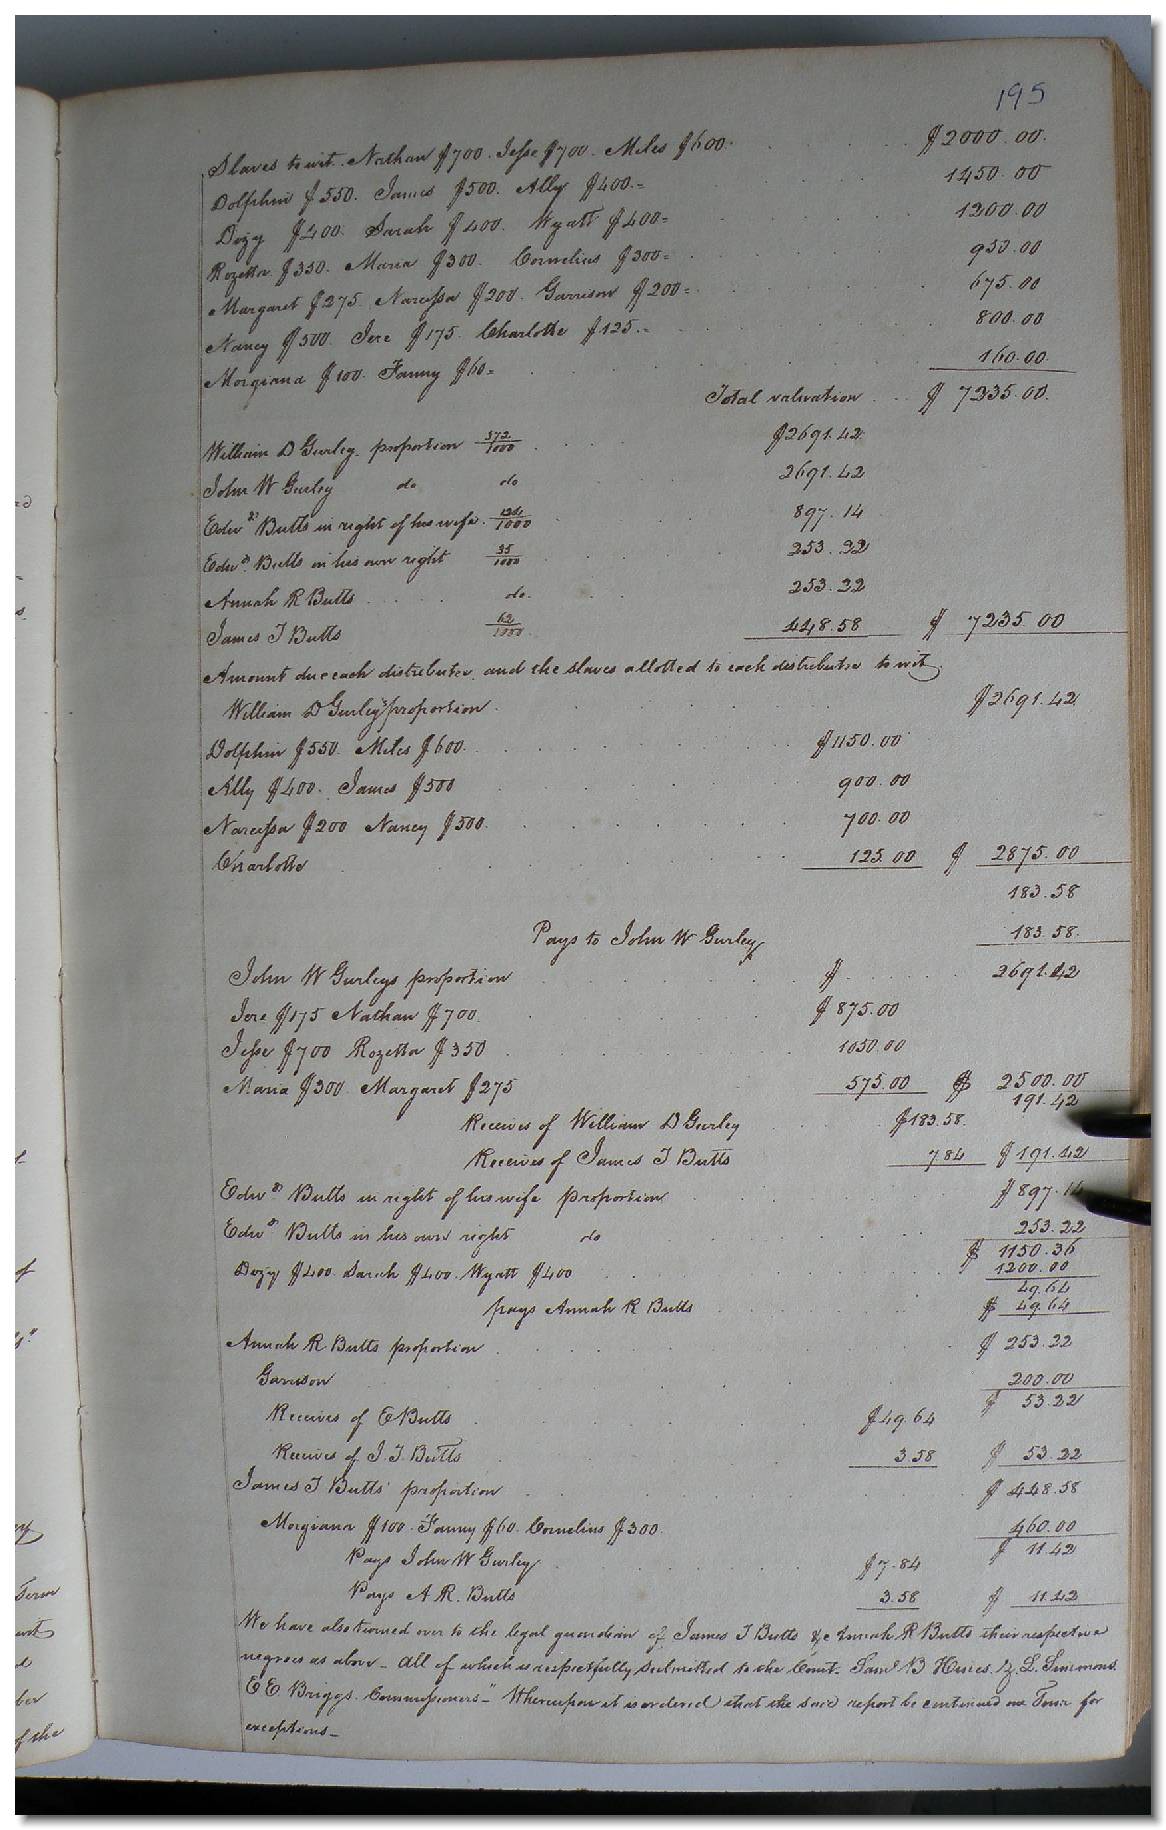 195
Slaves to wit. Nathan $700. Jesse $700. Miles $600. $2000.00.
Dolphin $550. James $500. Ally $400.= 1450.00
Dozy $400. Sarah $400. Wyatt $400= 1200.00
Rozetta $350. Maria $300. Cornelius $300= 950.00
Margaret $275. Narcissa $200. Garrison $200= 675.00
Nancy $500. Jere $175. Charlotte $125.= 800.00
Morgiana $100. Fanny $60= 160.00
Total valuation $ 7235.00.
William D Gurley. proportion 372/1000 $2691.42
John W Gurley do do 2691.42
Edwd Butts in right of his wife. 124/1000 897.14
Edwd Butts in his own right 35/1000 253.22
Annah R Butts do. 253.22
James T Butts 62/1000 448.58 $ 7235.00
Amount due each distributee, and the slaves allotted to each distributee to wit,
William D Gurley's proportion $2691.42
Dolphin $550. Miles $600. $1150.00
Ally $400. James $500 900.00
Narcissa $200 Nancy $500. 700.00
Charlotte 125.00 $ 2875.00
183.58
Pays to John W Gurley 183.58.
John W Gurleys proportion $ 2691.42
Jere $175 Nathan $700. $875.00
Jesse $700 Rozetta $350 1050.00
Maria $300. Margaret $275 575.00 $ 2500.00
191.42
Receives of William D Gurley $183.58.
Receives of James T Butts 7.84 $191.42
Edwd Butts in right of his wife proportion $897.14
Edwd Butts in his own right do 253.22
$ 1150.36
Dozy $400. Sarah $400. Wyatt $400 1200.00
49.64
pays Annah R Butts $ 49.64
Annah R Butts proportion $ 253.22
Garrison 200.00
$ 53.22
Receives of E Butts $49.64
Receives of J. T. Butts 3.58 $ 53.22
James T Butts' proportion $ 448.58
Morgiana $100. Fanny $60. Cornelius $300. 460.00
$ 11.42
Pays John W Gurley $7.84
Pays A. R. Butts 3.58 $ 11.42
We have also turned over to the legal guardian of James T Butts & Annah R Butts their respective
negroes as above_ All of which is respectfully submitted to the Court_ Saml B Hines. L. Simmons.
E E. Briggs. Commissioners_" Whereupon it is ordered that the said report be continued one Term for
exceptions_